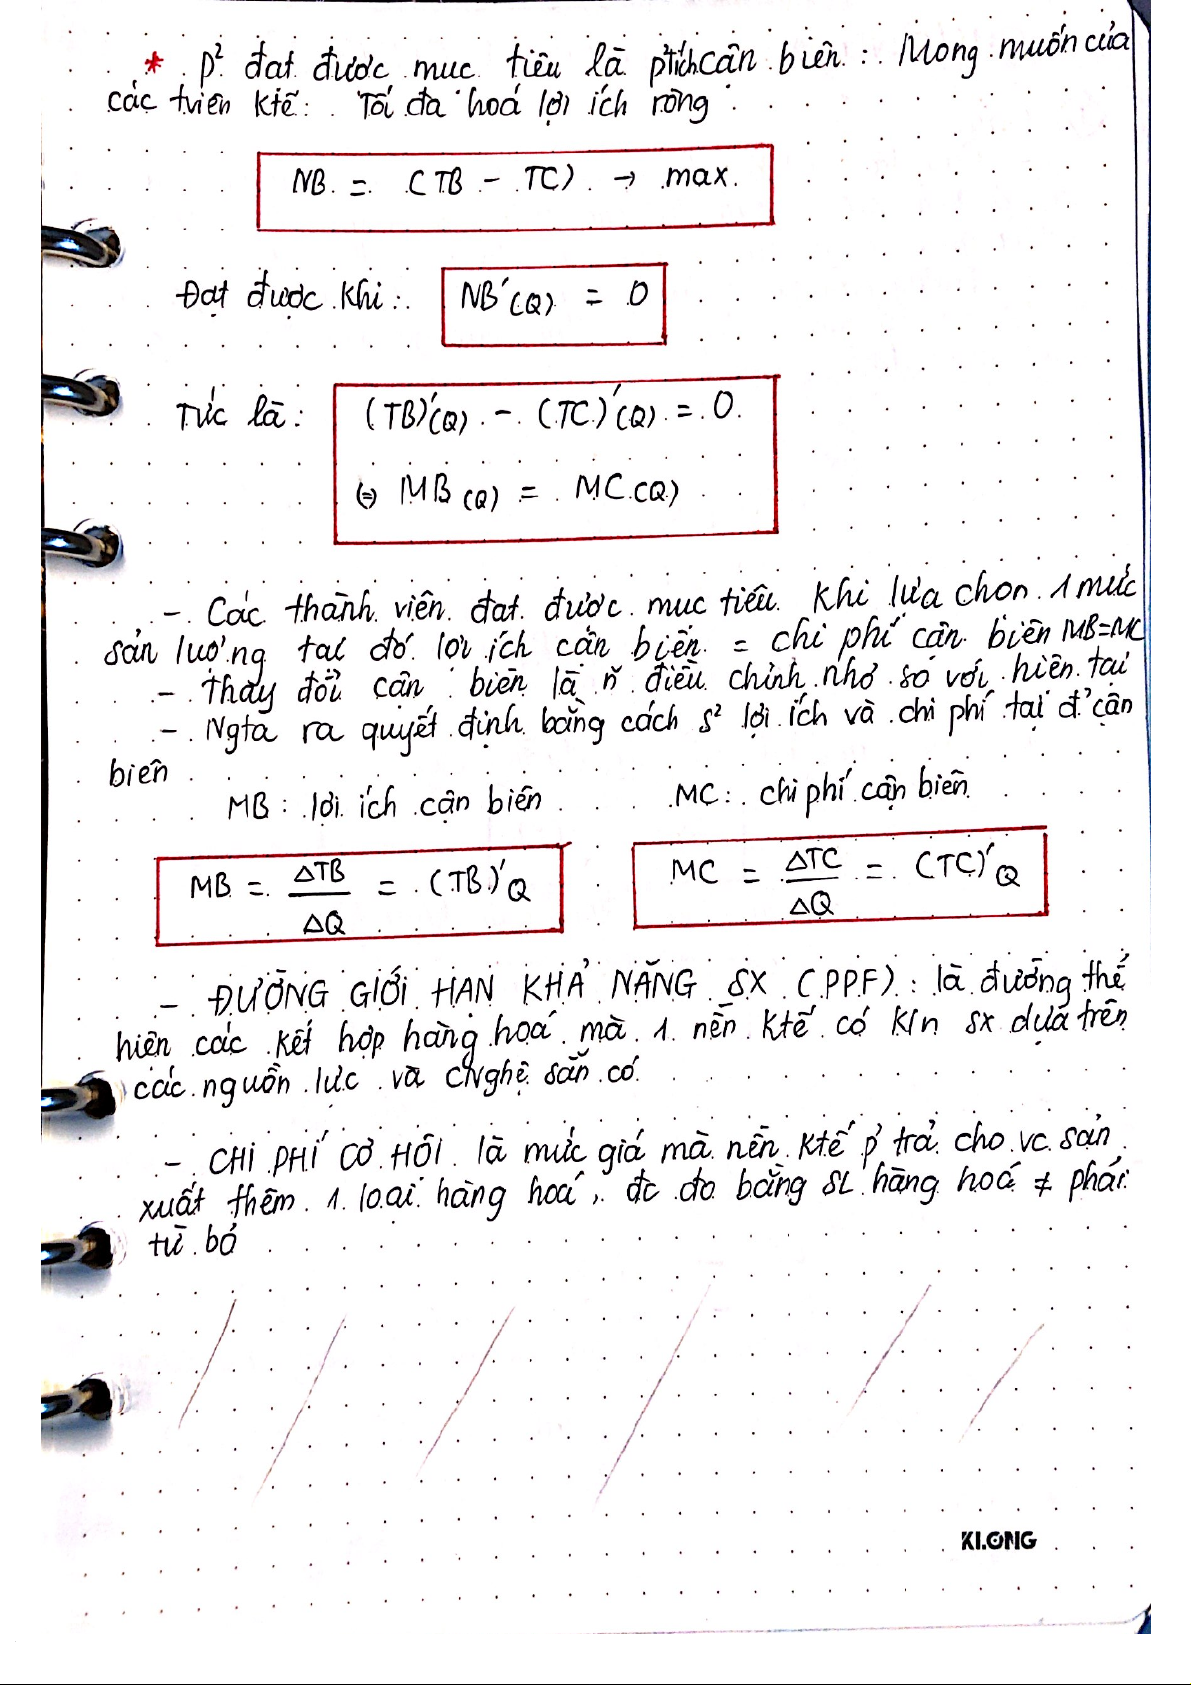 * p² đạt được mục tiêu là ptích cận biên : Mong muốn của
các tviên ktế : Tối đa hoá lợi ích ròng
NB = (TB - TC) → max
Đạt được khi : NB'(Q) = 0
Tức là : (TB)'(Q) - (TC)'(Q) = 0
(=) MB(Q) = MC(Q)
- Các thành viên đạt được mục tiêu khi lựa chọn 1 mức
sản lượng tại đó lợi ích cận biên = chi phí cận biên MB=MC
- Thay đổi cận biên là n̆ điều chỉnh nhỏ so với hiện tại
- Ngta ra quyết định bằng cách s² lợi ích và chi phí tại đ' cận
biên
MB : lợi ích cận biên MC : chi phí cận biên
MB = ΔTB/ΔQ = (TB)'Q MC = ΔTC/ΔQ = (TC)'Q
- ĐƯỜNG GIỚI HẠN KHẢ NĂNG SX (PPF) : là đường thể
hiện các kết hợp hàng hoá mà 1 nền ktế có k/n sx dựa trên
các nguồn lực và cNghệ sẵn có
- CHI PHÍ CƠ HỘI là mức giá mà nền ktế p' trả cho vc sản
xuất thêm 1 loại hàng hoá, đc đo bằng SL hàng hoá ≠ phải
từ bỏ
KLONG